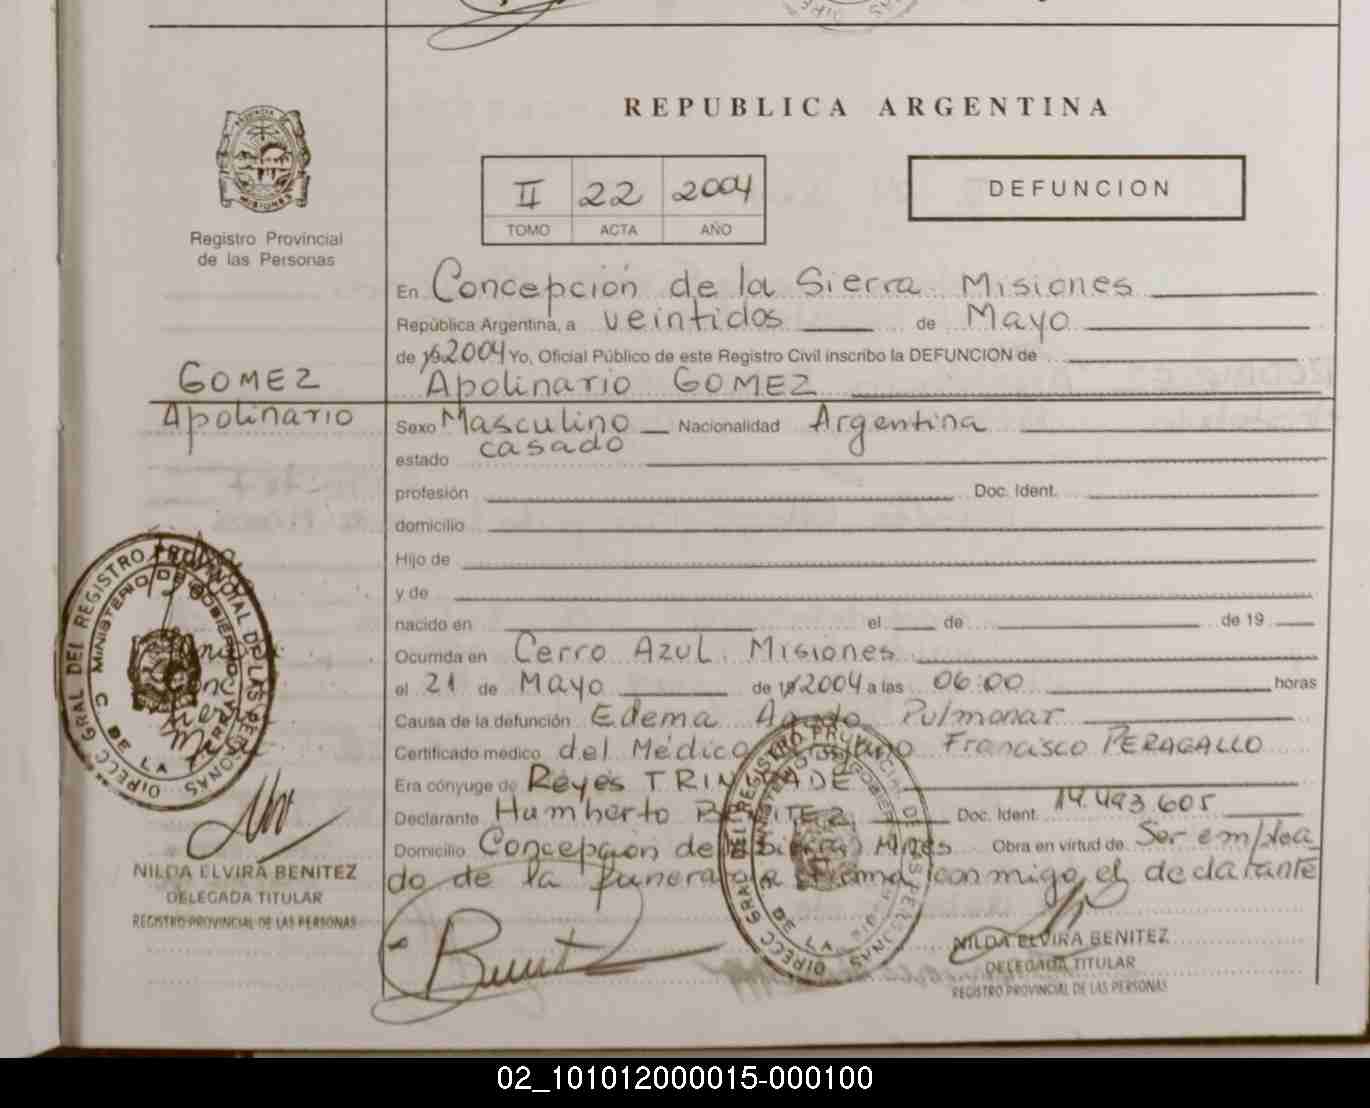 REPUBLICA ARGENTINA
II 22 2004
TOMO ACTA AÑO
DEFUNCION
PROVINCIA
MISIONES
Registro Provincial
de las Personas
En Concepción de la Sierra Misiones
República Argentina, a veintidos de Mayo
de 2004 Yo, Oficial Público de este Registro Civil inscribo la DEFUNCION de
GOMEZ
Apolinario
Apolinario GOMEZ
Sexo Masculino Nacionalidad Argentina
estado casado
profesión Doc. Ident.
domicilio
Hijo de
y de
nacido en el de de 19
Ocurrida en Cerro Azul. Misiones
el 21 de Mayo de 2004 a las 06:00 horas
Causa de la defunción Edema Agudo Pulmonar
Certificado médico del Médico Cirujano Francisco PERAGALLO
Era cónyuge de Reyes TRINDADE
Declarante Humberto BENITEZ Doc. Ident. 14.493.605
Domicilio Concepción de la Sierra Mnes Obra en virtud de Ser emplea
do de la funeraria Firma conmigo el declarante
DIRECC GRAL DEL REGISTRO PROVINCIAL DE LAS PERSONAS
MINISTERIO DE GOBIERNO
DE LA
NILDA ELVIRA BENITEZ
DELEGADA TITULAR
REGISTRO PROVINCIAL DE LAS PERSONAS
DIRECC GRAL DEL REGISTRO PROVINCIAL DE LAS PERSONAS
MINISTERIO DE GOBIERNO
DE LA
NILDA ELVIRA BENITEZ
DELEGADA TITULAR
REGISTRO PROVINCIAL DE LAS PERSONAS
02_101012000015-000100